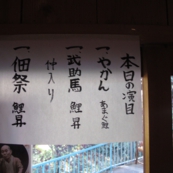 本日の演目
一 やかん あまぐ鯉
一 武助馬 鯉昇
仲入り
一 佃祭 鯉昇